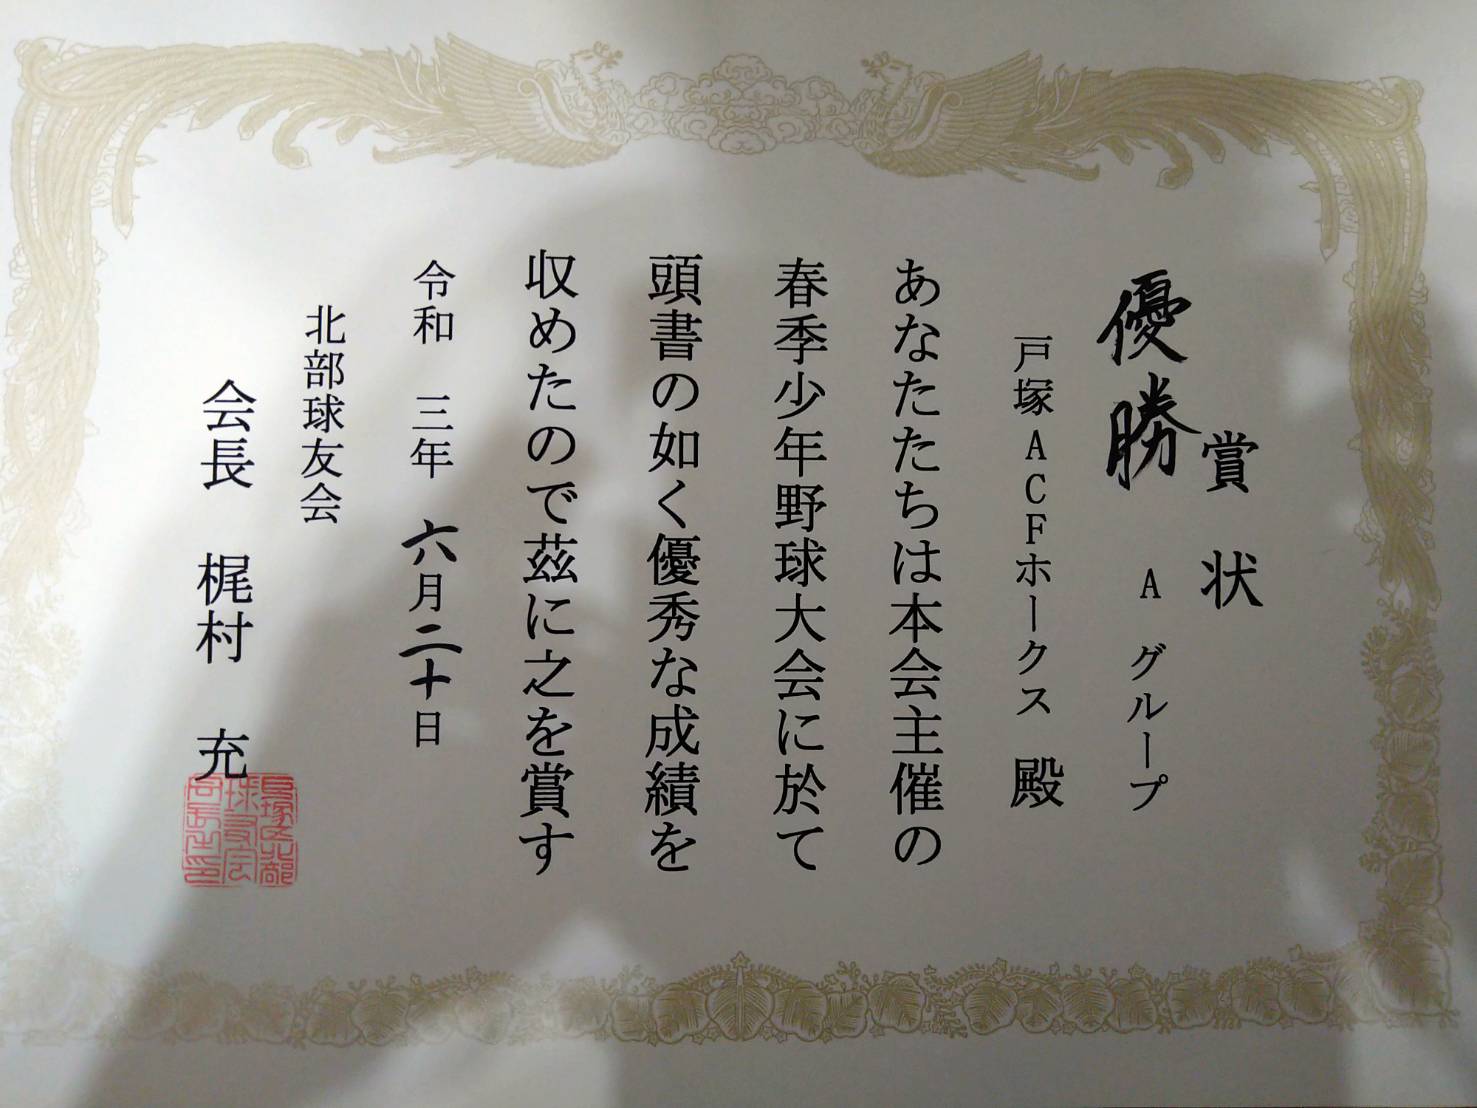 賞状
優勝 A グループ
戸塚ACFホークス 殿
あなたたちは本会主催の
春季少年野球大会に於て
頭書の如く優秀な成績を
収めたので茲に之を賞す
令和 三年 六月二十日
北部球友会
会長 梶村 充
戸塚区北部
球友会
会長之印